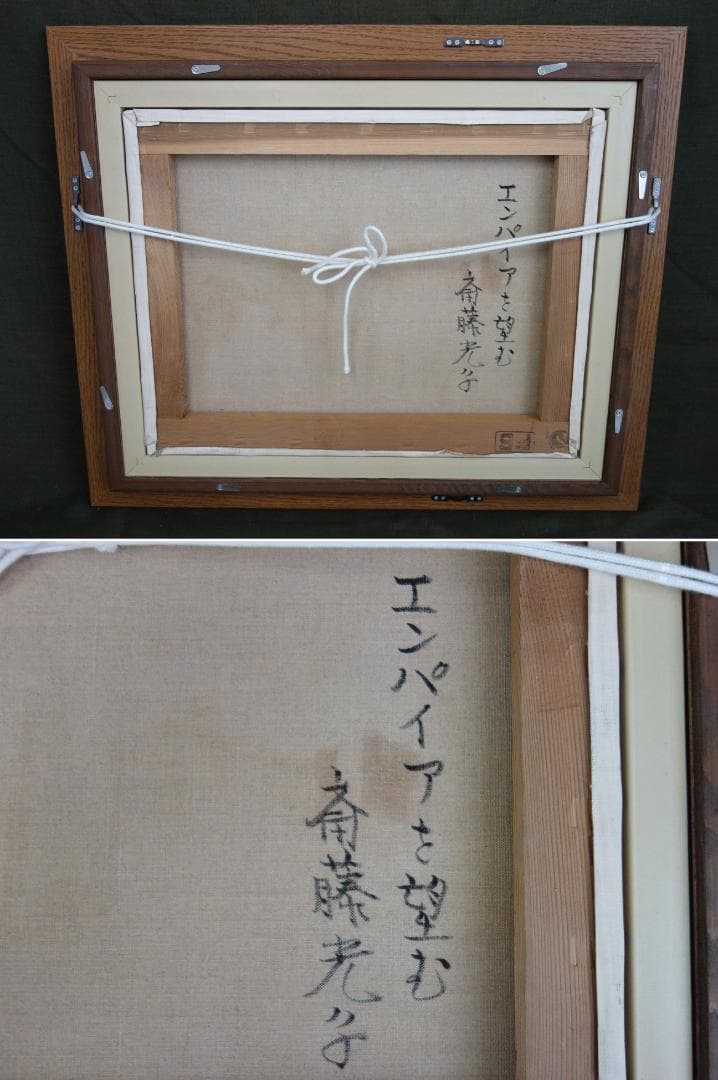 エンパイアを望む
斎藤光子
エンパイアを望む
斎藤光子